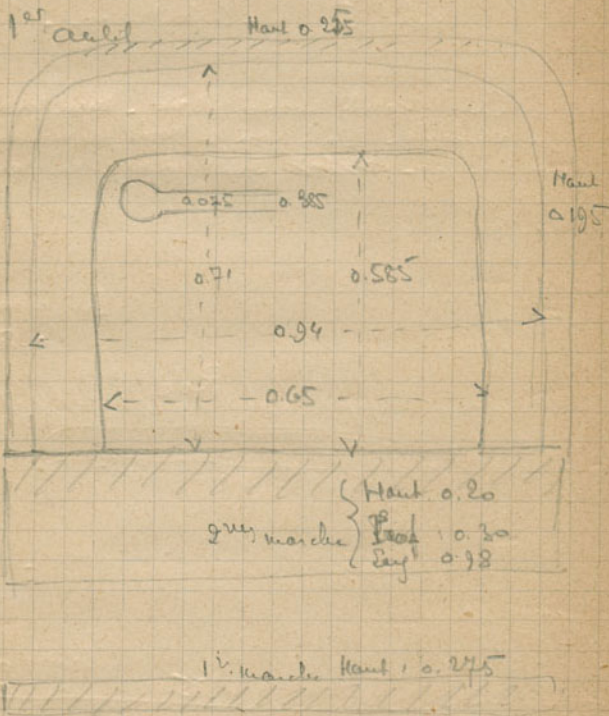 1er
Haut 0.255
Haut
0.195
0.075 0.385
0.71 0.585
0.94
0.65
Haut 0.20
2me marche Prof. 0.30
Larg 0.98
1e marche Haut. 0.275